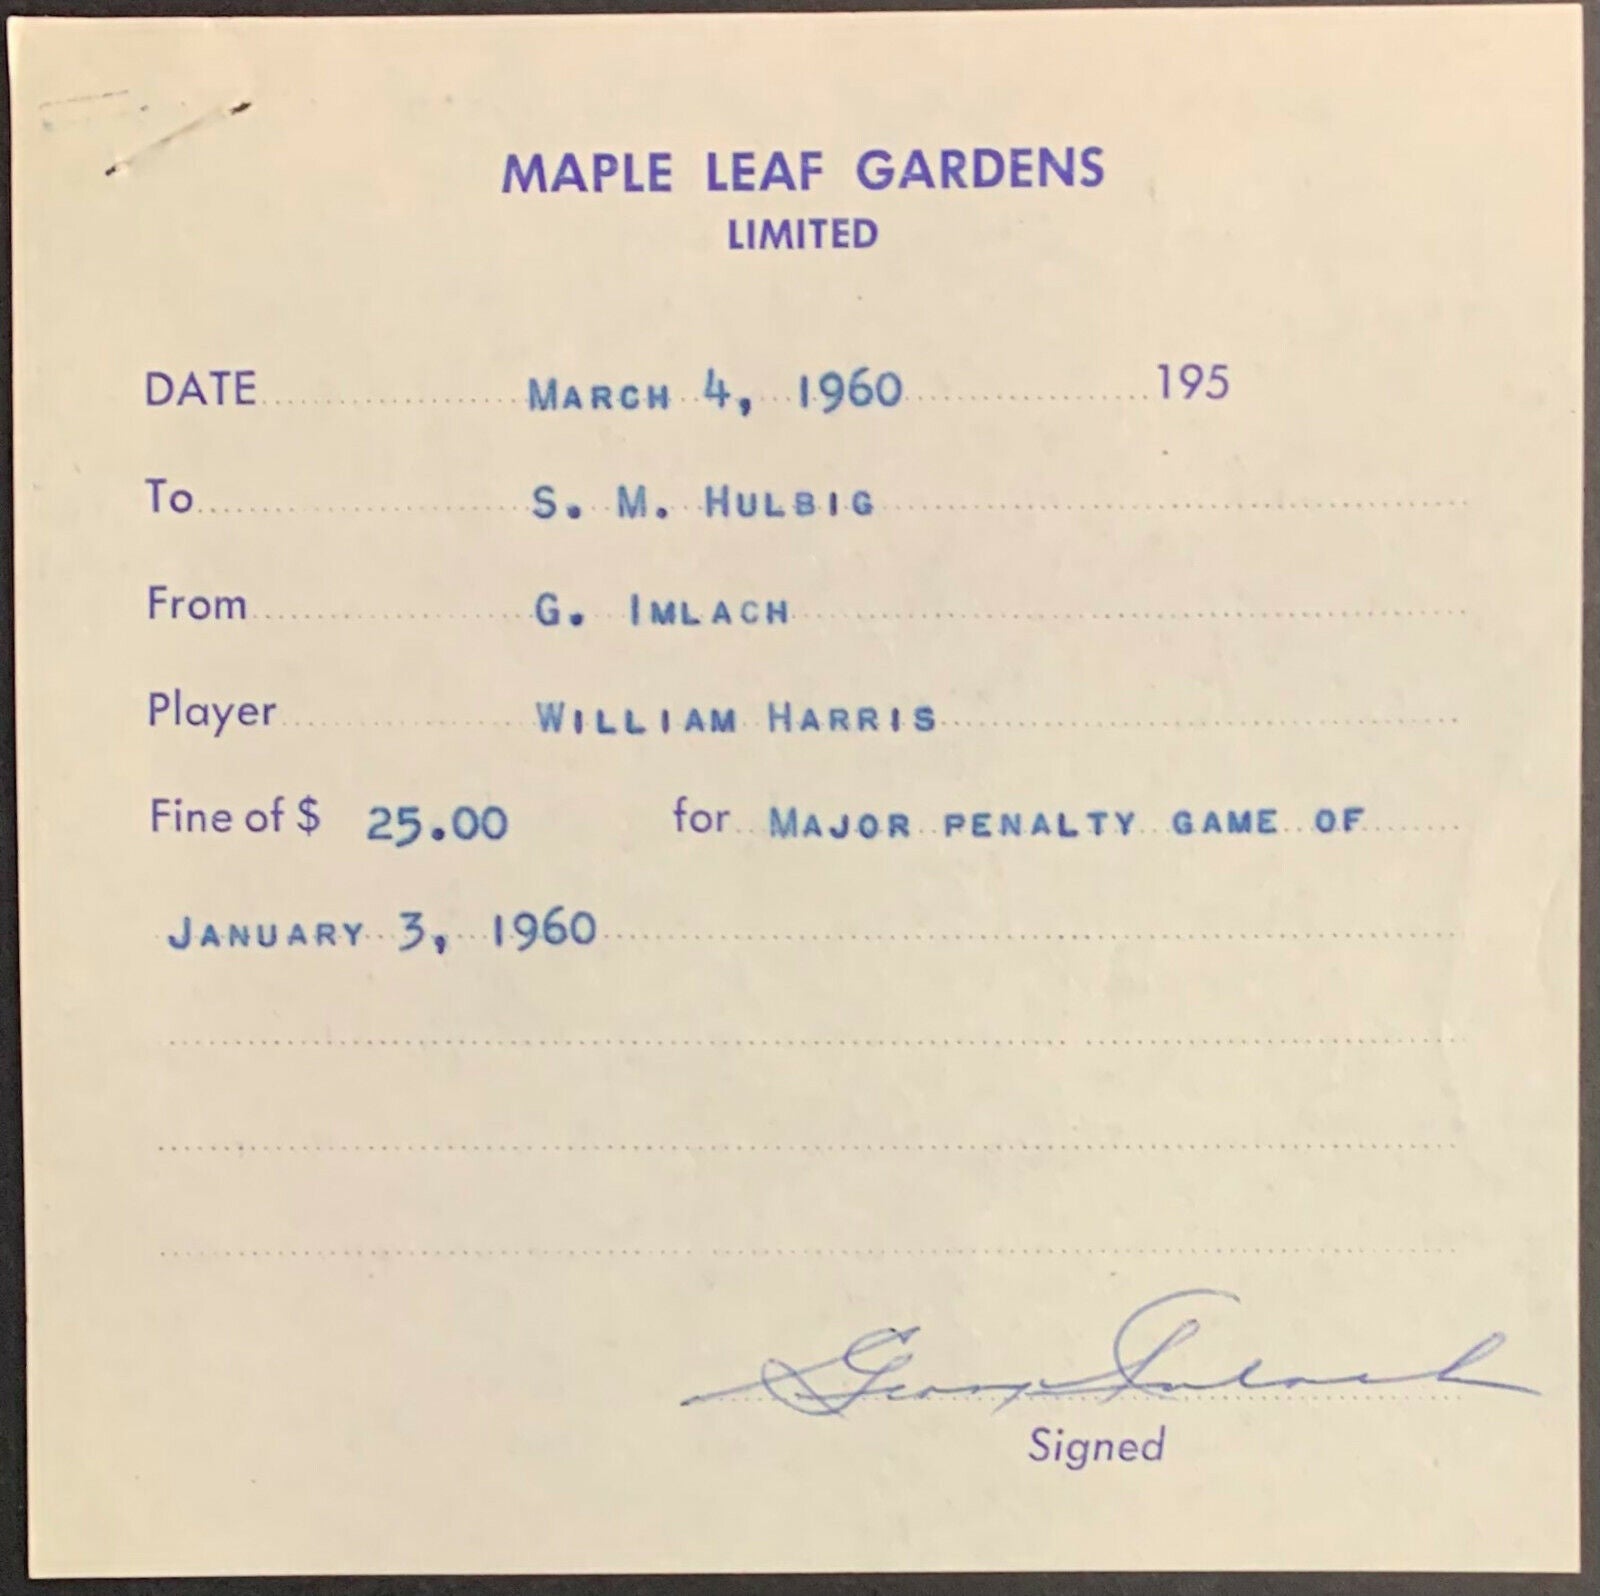 MAPLE LEAF GARDENS
LIMITED
DATE MARCH 4, 1960 195
To S. M. HULBIG
From G. IMLACH
Player WILLIAM HARRIS
Fine of $ 25.00 for MAJOR PENALTY GAME OF
JANUARY 3, 1960
George Imlach
Signed